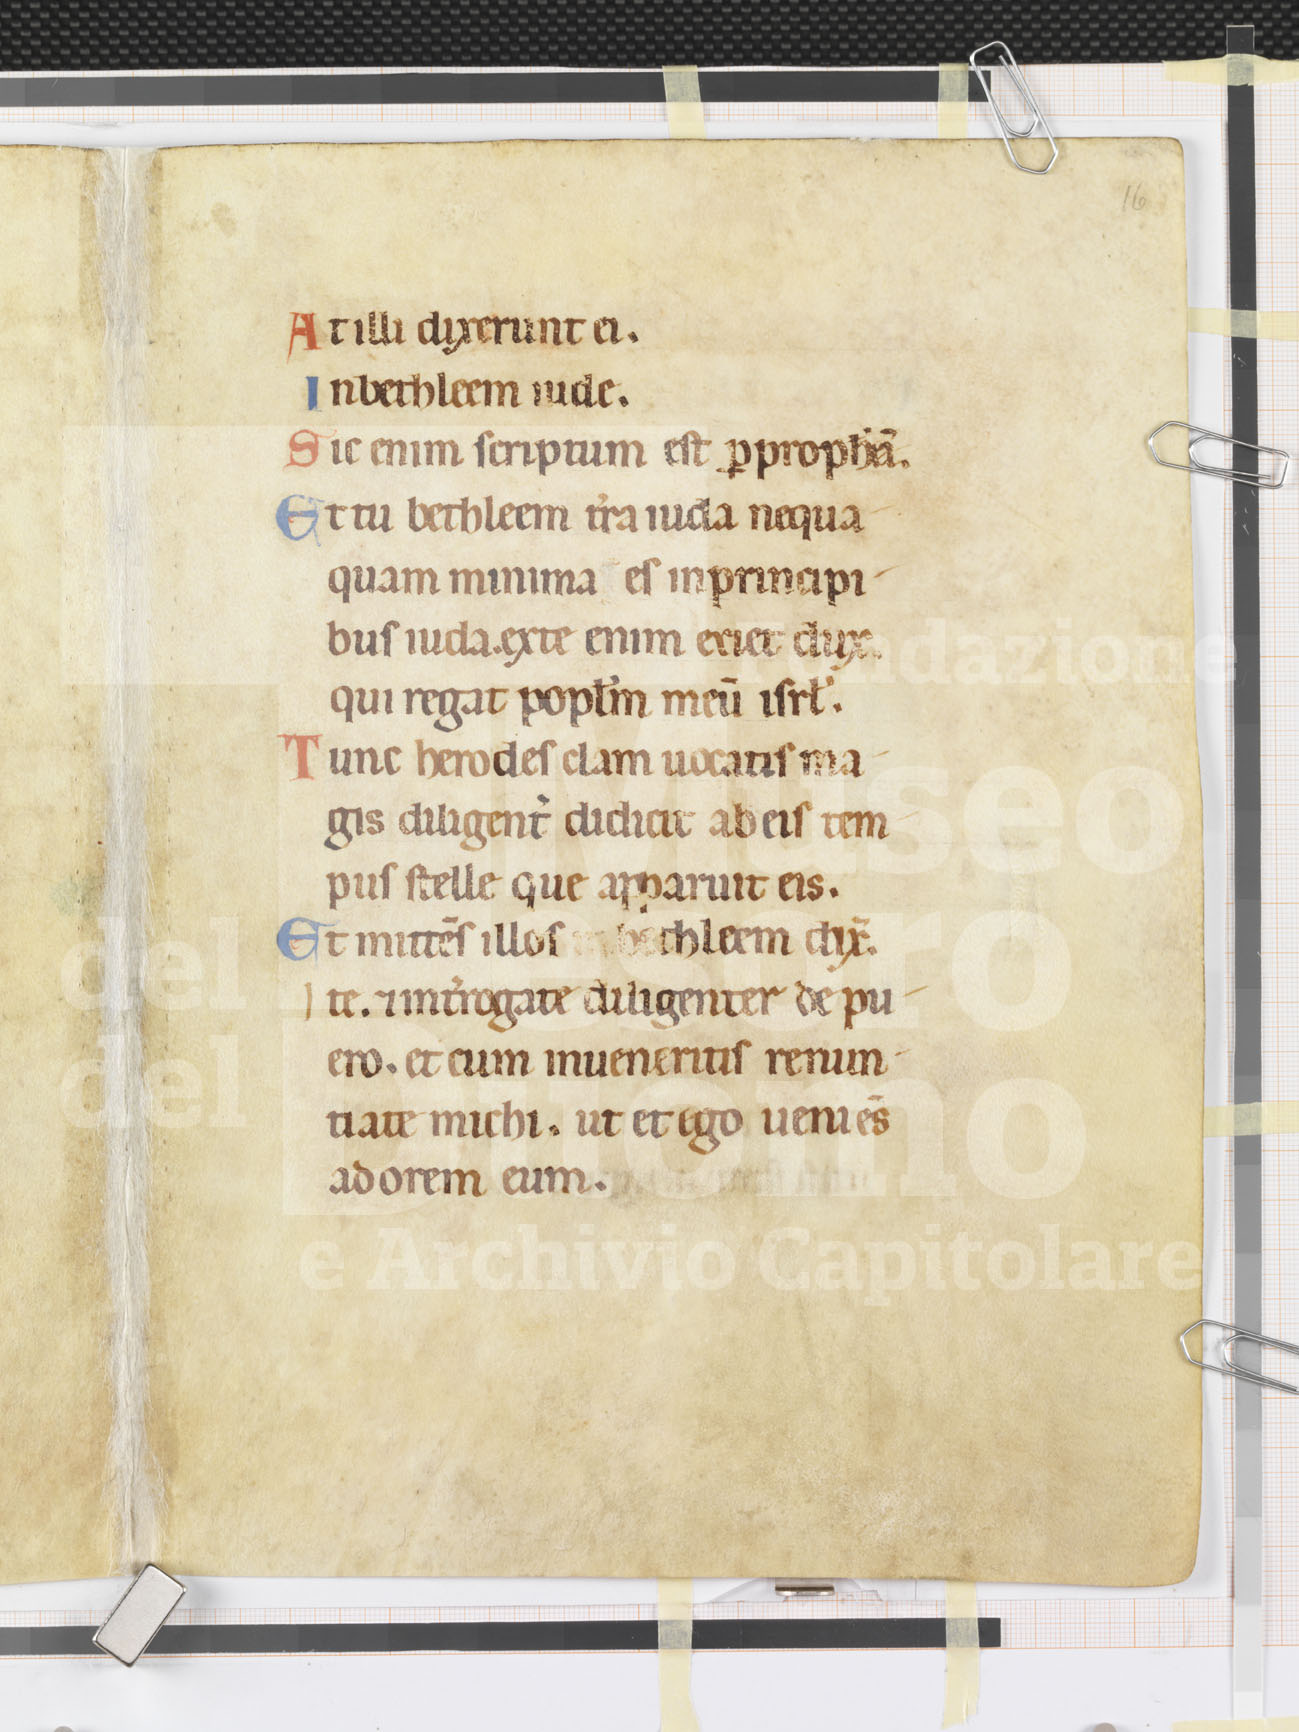 16
At illi dixerunt ei.
Inbethleem iude.
Sic enim scriptum est ꝑ prophā.
Et tu bethleem t̉ra iuda nequa-
quam minima es inprincipi-
bus iuda. exte enim exiet dux.
qui regat popłm meū isrł.
Tunc herodes clam uocatis ma-
gis diligent̉ didicit ab eis tem-
pus stelle que apparuit eis.
Et mittēs illos in bethleem dix̄.
Ite. ⁊ int̉rogate diligenter de pu-
ero. et cum inueneritis renun-
tiate michi. ut et ego ueniēs
adorem eum.
Fondazione
Museo
dell'Opera
del Duomo
e Archivio Capitolare